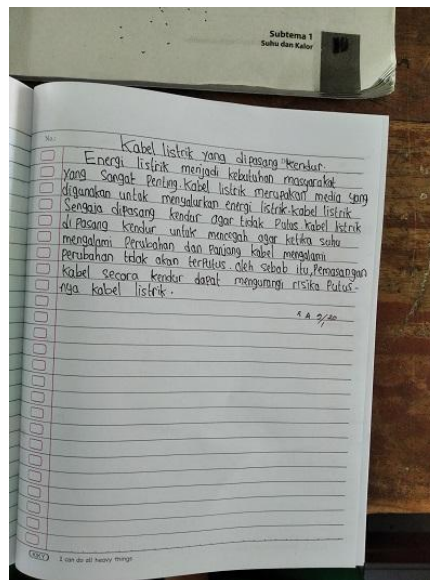 Subtema 1
Suhu dan Kalor
No:
Kabel listrik yang dipasang "kendur.
Energi listrik menjadi kebutuhan masyarakat
yang sangat penting. Kabel listrik merupakan media yang
digunakan untuk menyalurkan energi listrik. kabel listrik
sengaja dipasang kendur agar tidak putus. kabel listrik
di pasang kendur untuk mencegah agar ketika suhu
mengalami perubahan dan panjang kabel mengalami
perubahan tidak akan terputus. oleh sebab itu, Pemasangan
kabel secara kendur dapat mengurangi risika putus-
nya kabel listrik.
I can do all heavy things